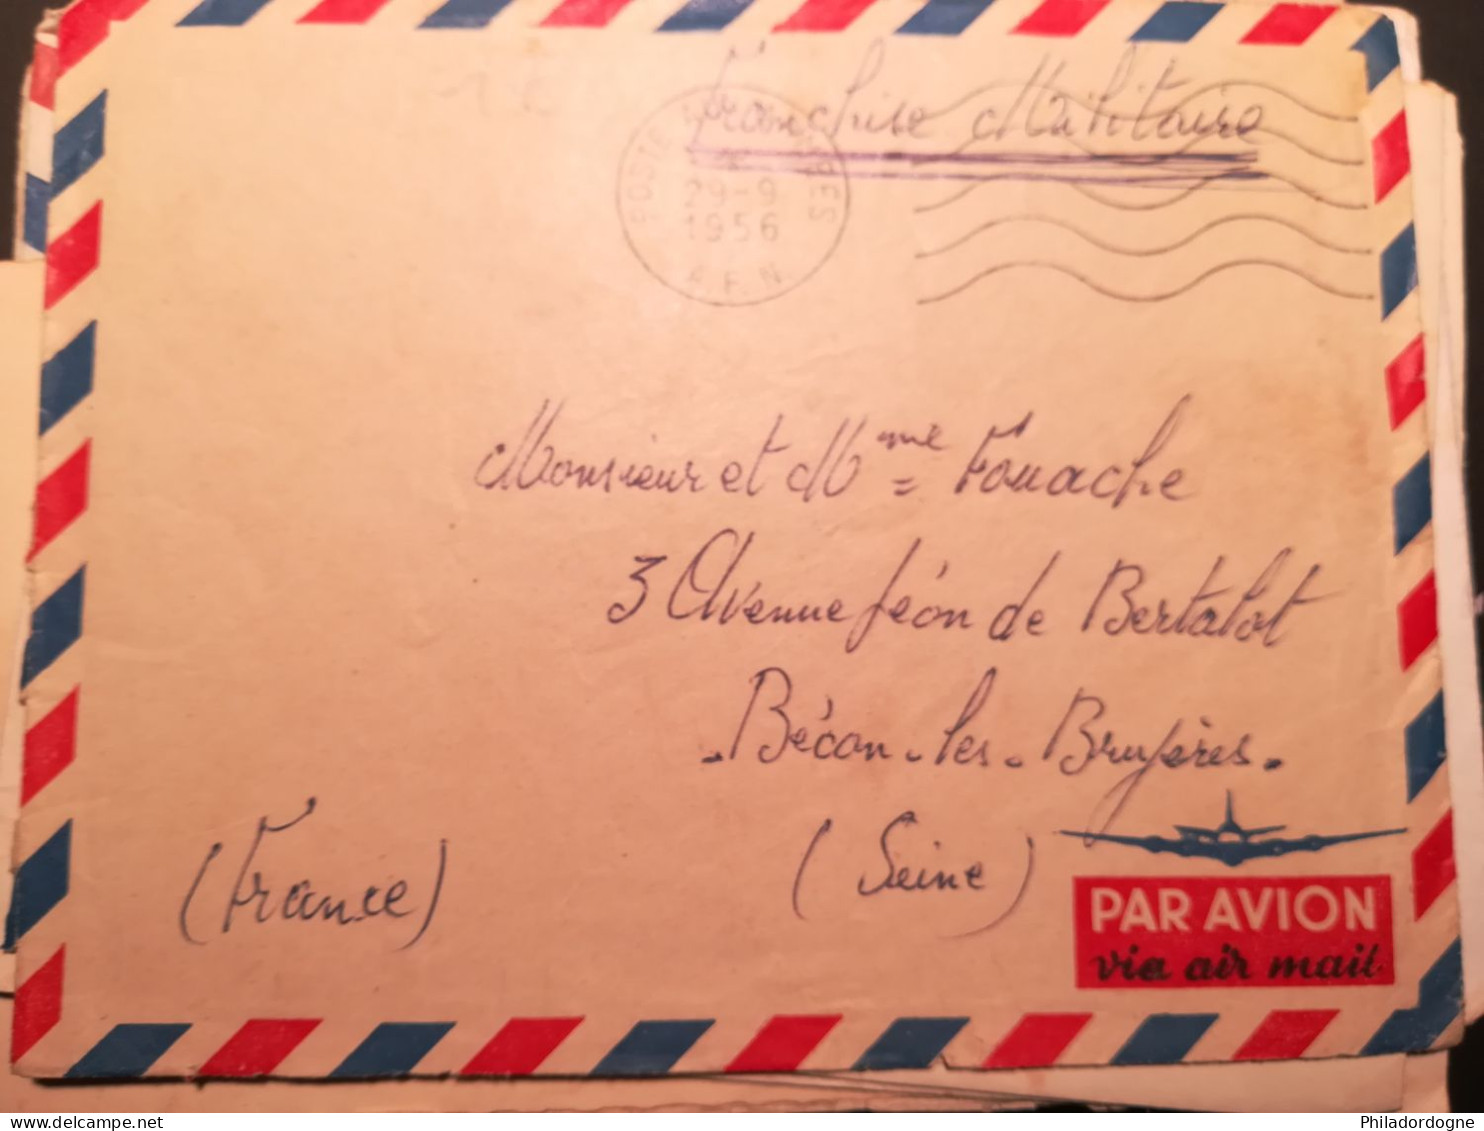 Franchise Militaire
POSTE AUX ARMEES
29-9
1956
A.F.N.
Monsieur et Mme Fouache
3 Avenue Léon de Bertalot
- Bécon-les-Bruyères -
(Seine)
(France)
PAR AVION
via air mail
Philadordogne